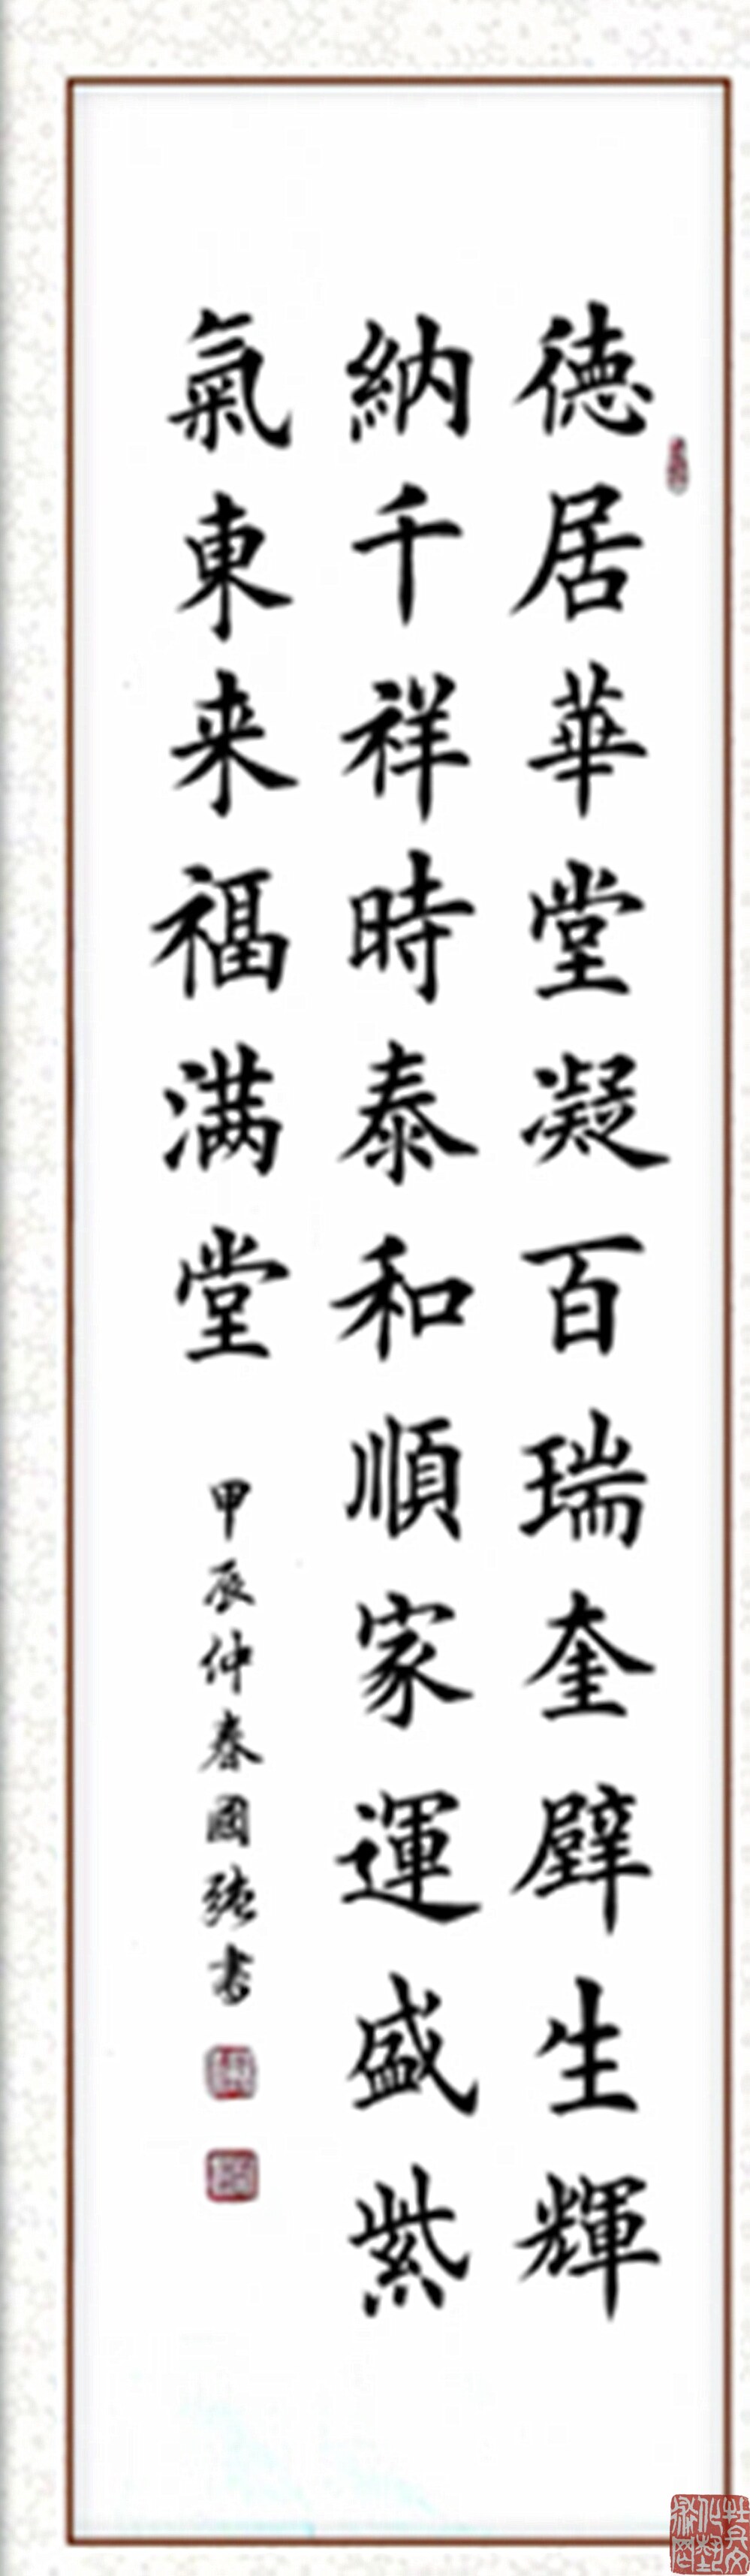 德居華堂凝百瑞奎壁生輝
納千祥時泰和順家運盛紫
氣東来福满堂
甲辰仲春國强书